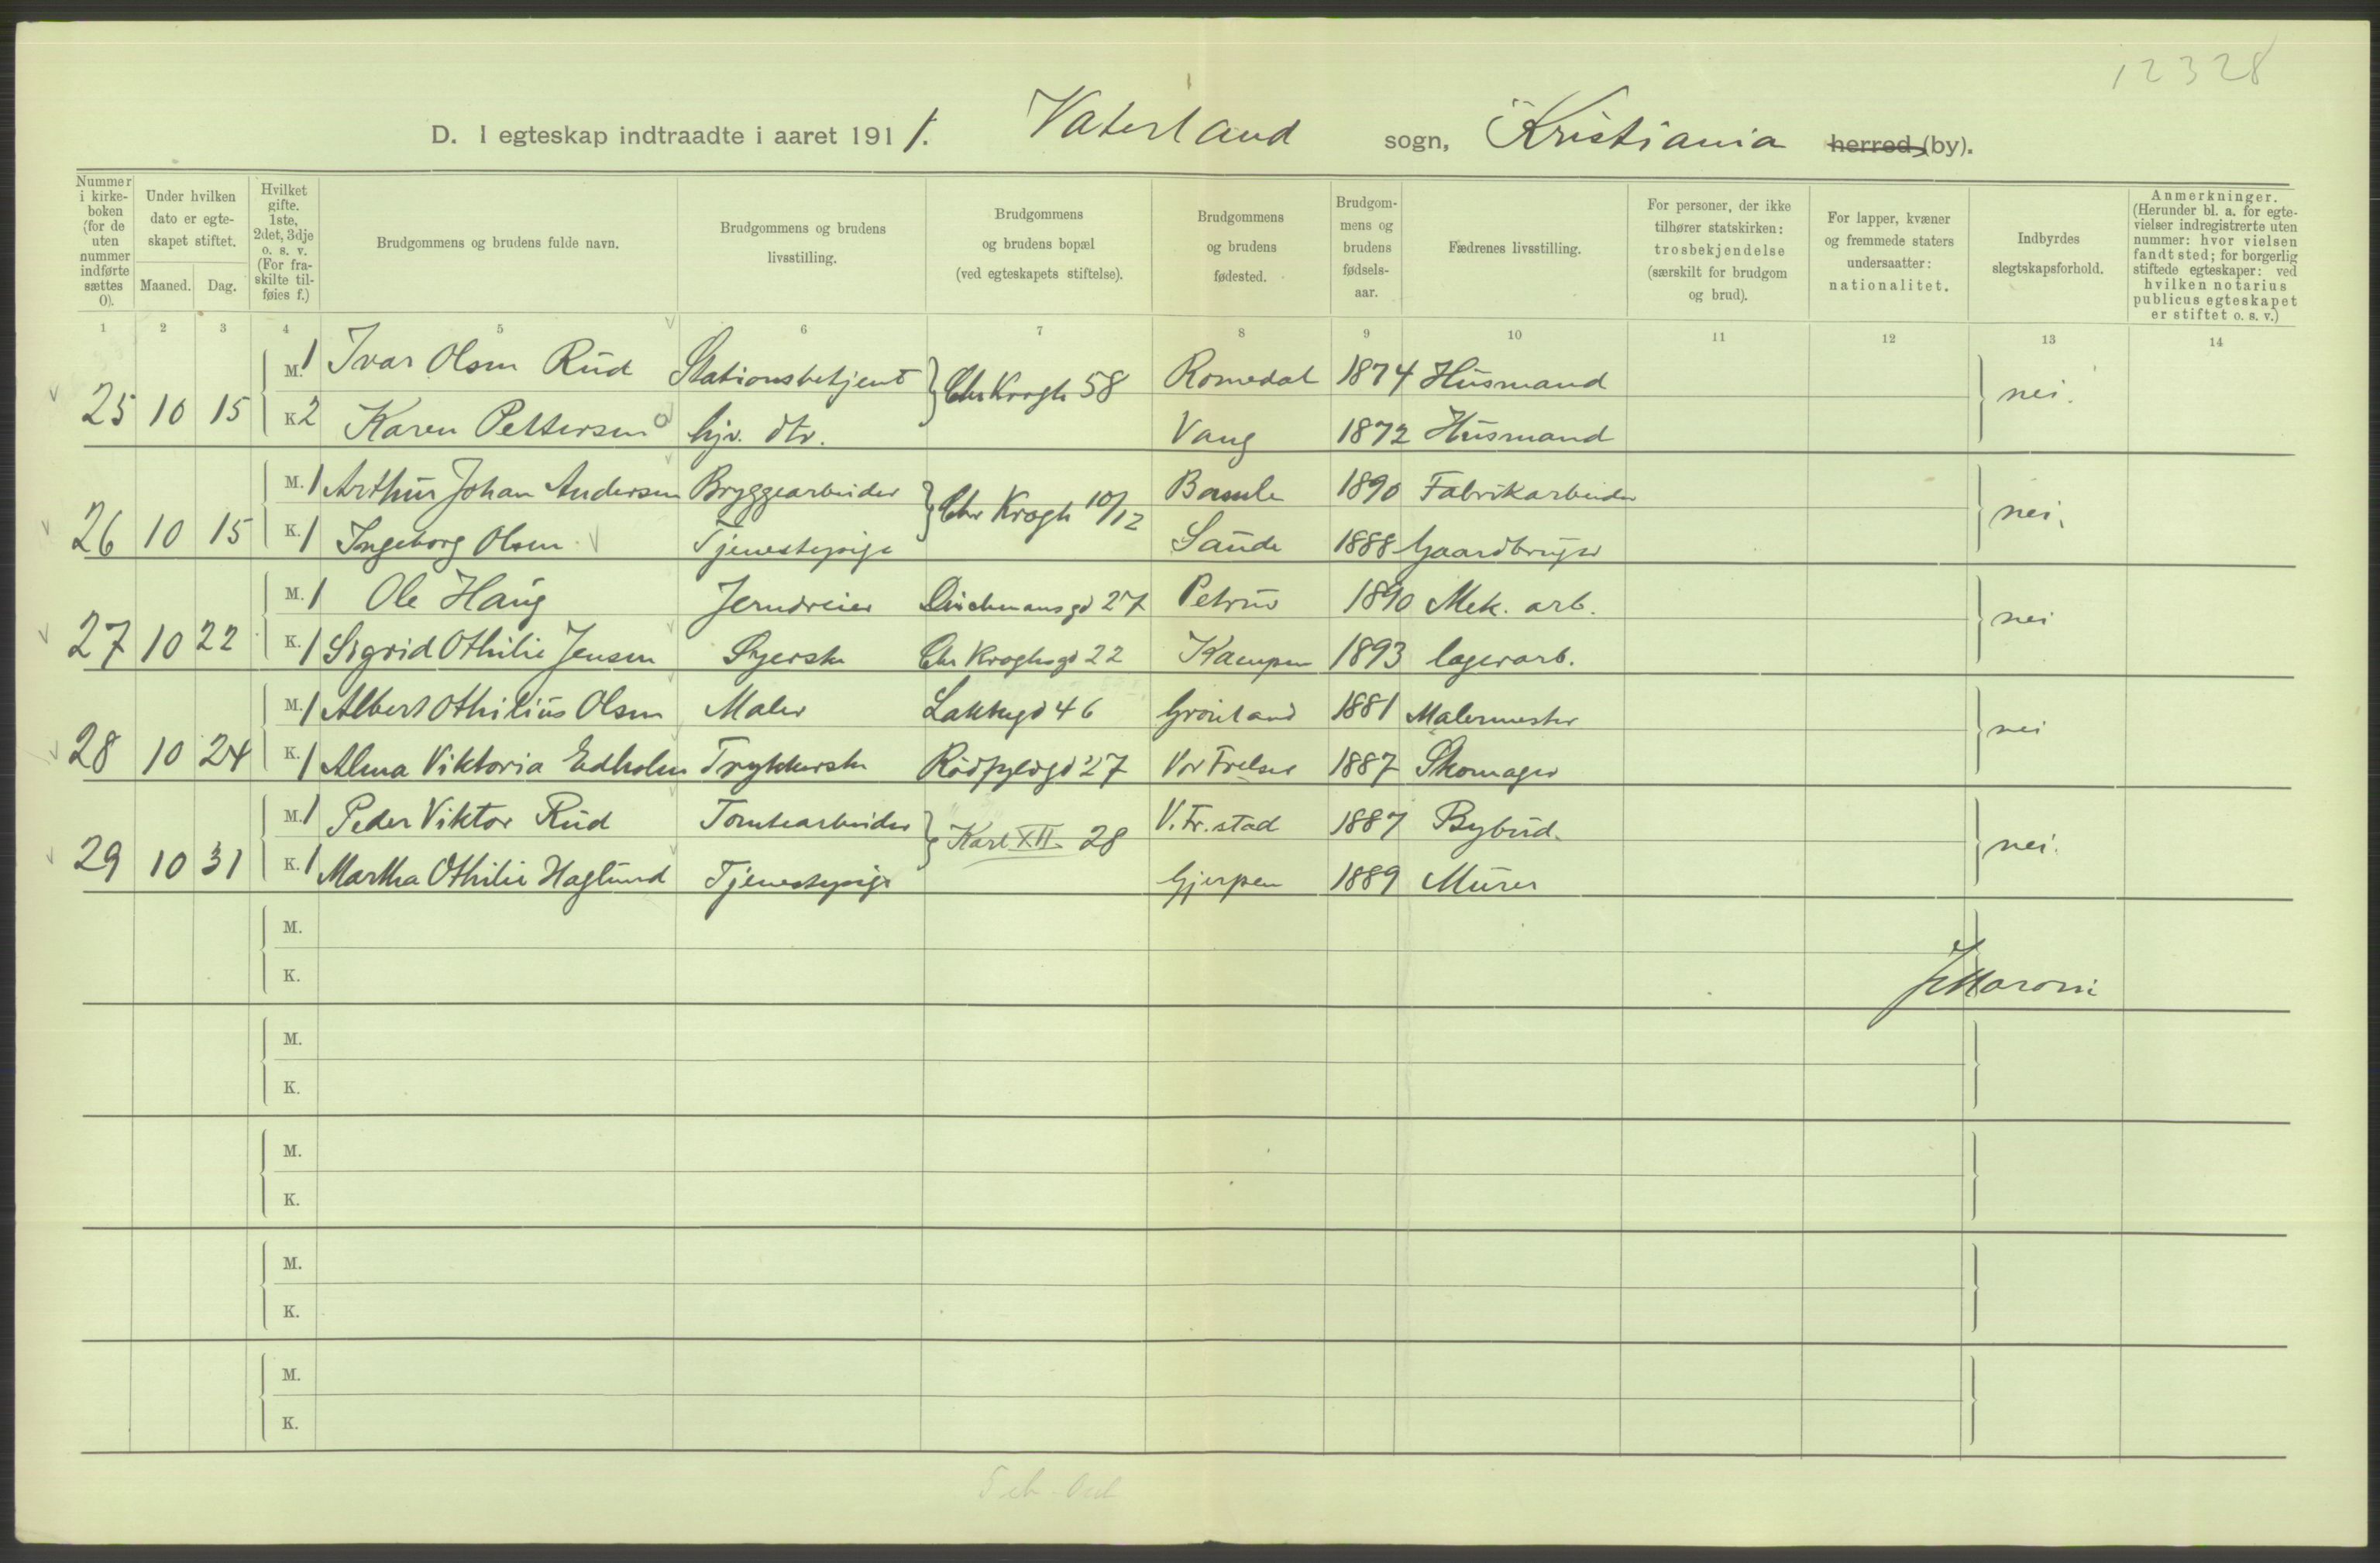 12328
D. I egteskap indtraadte i aaret 1911. Vaterland sogn, Kristiania herred (by).
Nummer i kirkeboken (for de uten nummer indførte sættes 0).
Under hvilken dato er egteskapet stiftet.
Maaned. Dag.
Hvilket gifte. 1ste, 2det, 3dje o. s. v. (For fraskilte tilføies f.)
Brudgommens og brudens fulde navn.
Brudgommens og brudens livsstilling.
Brudgommens og brudens bopæl (ved egteskapets stiftelse).
Brudgommens og brudens fødested.
Brudgommens og brudens fødselsaar.
Fædrenes livsstilling.
For personer, der ikke tilhører statskirken: trosbekjendelse (særskilt for brudgom og brud).
For lapper, kvæner og fremmede staters undersaatter: nationalitet.
Indbyrdes slegtskapsforhold.
Anmerkninger. (Herunder bl. a. for egtevielser indregistrerte uten nummer: hvor vielsen fandt sted; for borgerlig stiftede egteskaper: ved hvilken notarius publicus egteskapet er stiftet o. s. v.)
1 2 3 4 5 6 7 8 9 10 11 12 13 14
M. 1 Ivar Olsen Rud Stationsbetjent Chr Krogh 58 Romedal 1874 Husmand nei.
25 10 15 K. 2 Karen Pettersen hjv. dtr. Vang 1872 Husmand
M. 1 Arthur Johan Andersen Bryggearbeider Chr Krogh 10/12 Bamle 1890 Fabrikarbeider nei.
26 10 15 K. 1 Ingeborg Olsen Tjenestepige Saude 1888 Gaardbruger
M. 1 Ole Haug Jerndreier Deichmansgd 27 Petrus 1890 Mek. arb. nei
27 10 22 K. 1 Sigrid Othilie Jensen Syerske Chr Kroghsgd 22 Kampen 1893 lagerarb.
M. 1 Albert Othilius Olsen Maler Lakkegd 46 Grønland 1881 Malermester nei
28 10 24 K. 1 Alma Viktoria Edholm Trykkerske Rødfyldgd 27 Vor Frelser 1887 Skomager
M. 1 Peder Viktor Rud Tomtearbeider Karl XII 28 V. Fr. stad 1887 Bybud. nei.
29 10 31 K. 1 Martha Othilie Haglund Tjenestepige Gjerpen 1889 Murer
M.
K. Maroni
M.
K.
M.
K.
M.
K.
M.
K.